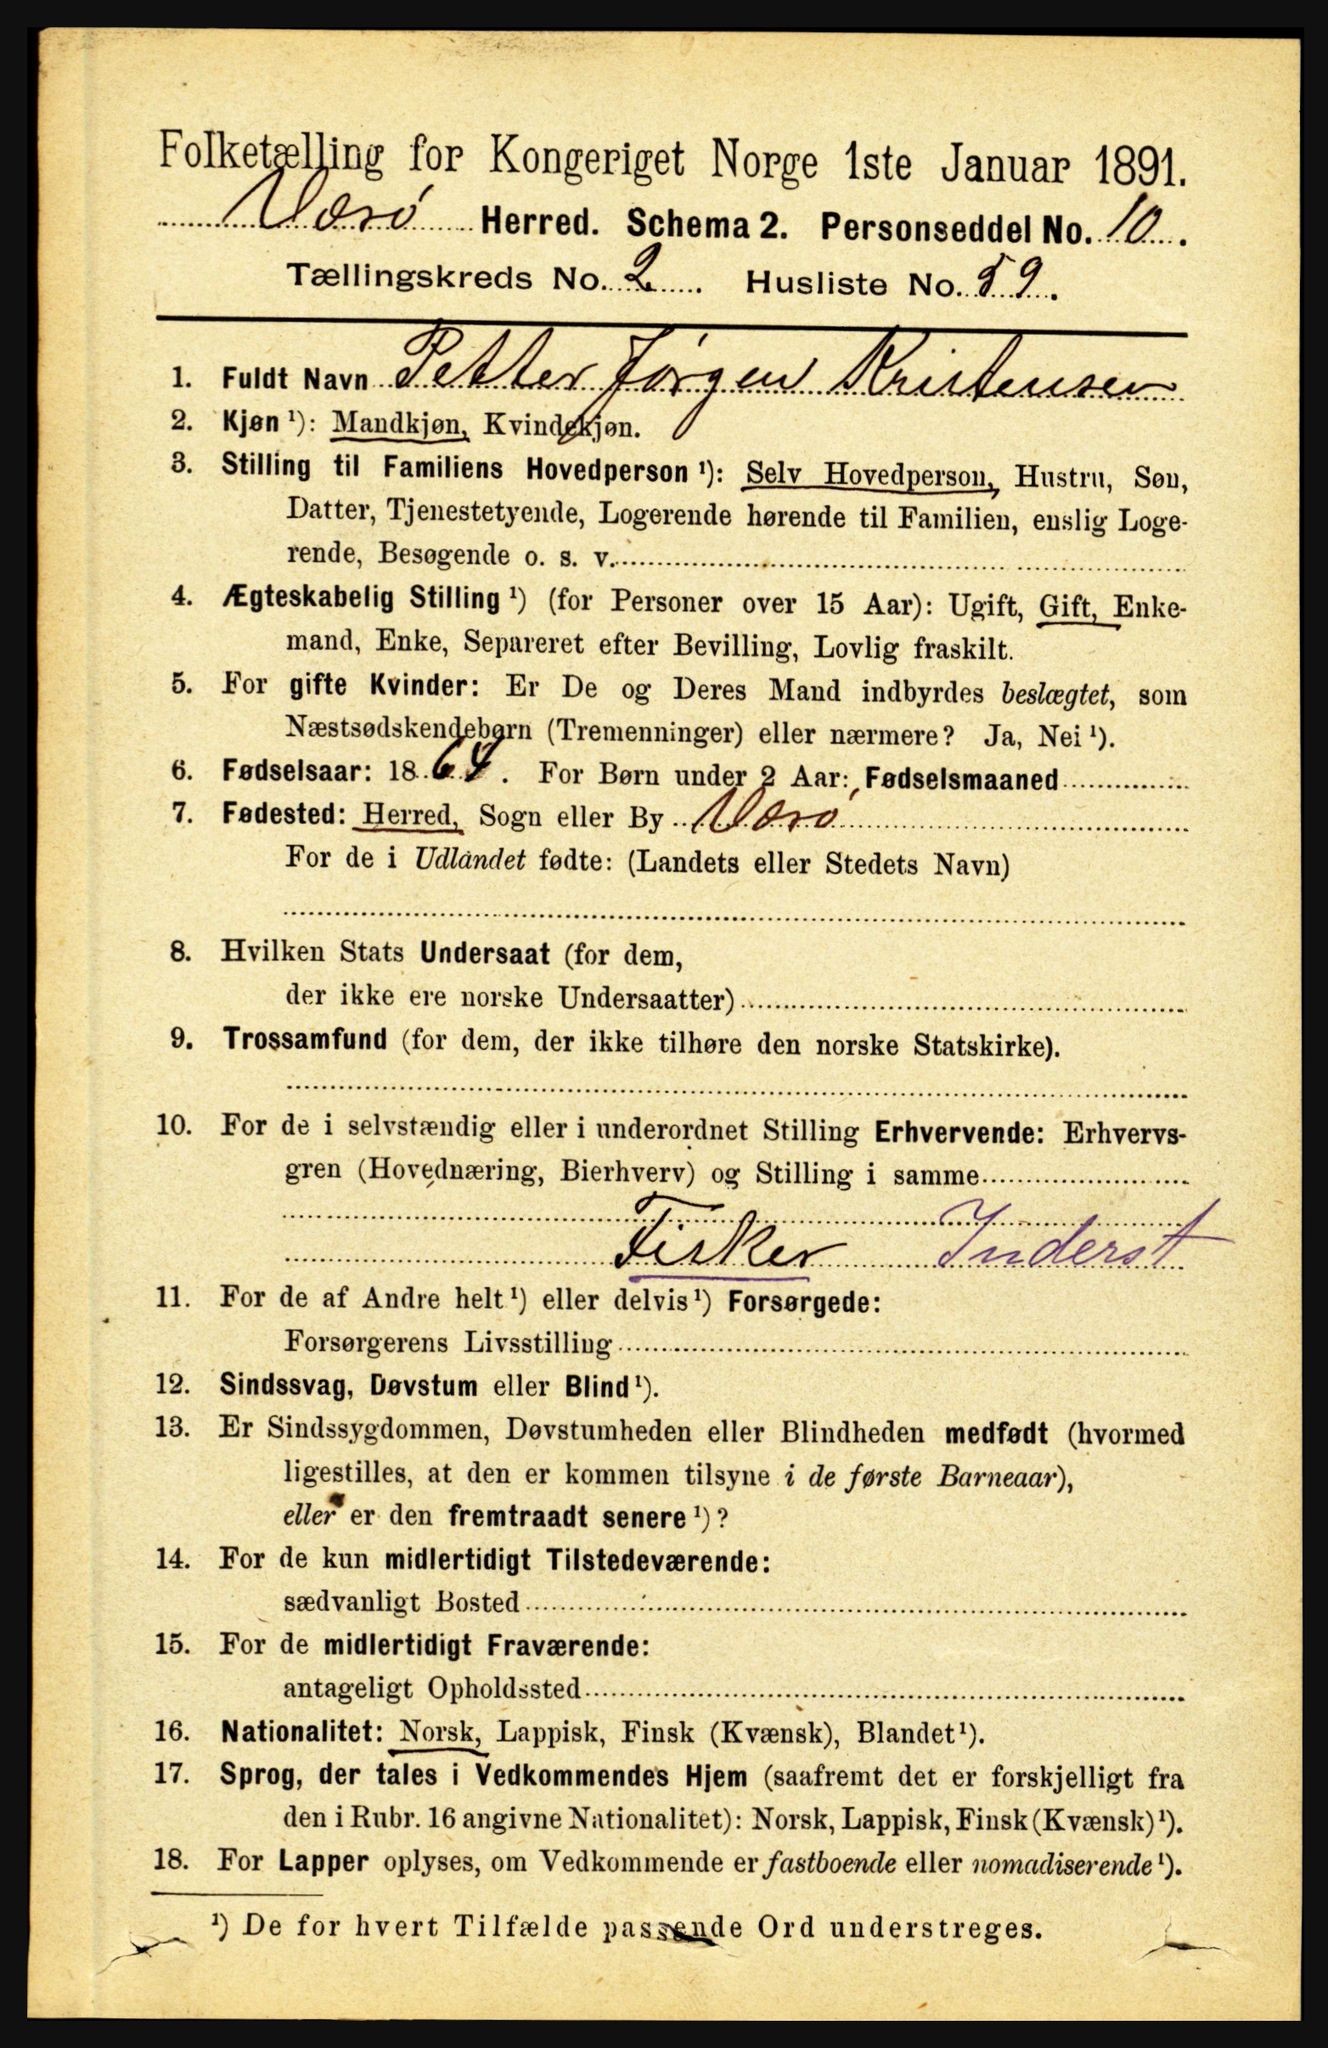 Folketælling for Kongeriget Norge 1ste Januar 1891.
Værø Herred. Schema 2. Personseddel No. 10.
Tællingskreds No. 2. Husliste No. 59.
1. Fuldt Navn Petter Jørgen Kristensen
2. Kjøn ¹): Mandkjøn, Kvindekjøn.
3. Stilling til Familiens Hovedperson ¹): Selv Hovedperson, Hustru, Søn,
Datter, Tjenestetyende, Logerende hørende til Familien, enslig Loge-
rende, Besøgende o. s. v.
4. Ægteskabelig Stilling ¹) (for Personer over 15 Aar): Ugift, Gift, Enke-
mand, Enke, Separeret efter Bevilling, Lovlig fraskilt.
5. For gifte Kvinder: Er De og Deres Mand indbyrdes beslægtet, som
Næstsødskendebørn (Tremenninger) eller nærmere? Ja, Nei ¹).
6. Fødselsaar: 1864. For Børn under 2 Aar: Fødselsmaaned
7. Fødested: Herred, Sogn eller By Værø
For de i Udlandet fødte: (Landets eller Stedets Navn)
8. Hvilken Stats Undersaat (for dem,
der ikke ere norske Undersaatter)
9. Trossamfund (for dem, der ikke tilhøre den norske Statskirke).
10. For de i selvstændig eller i underordnet Stilling Erhvervende: Erhvervs-
gren (Hovednæring, Bierhverv) og Stilling i samme
Fisker Inderst
11. For de af Andre helt ¹) eller delvis ¹) Forsørgede:
Forsørgerens Livsstilling
12. Sindssvag, Døvstum eller Blind ¹).
13. Er Sindssygdommen, Døvstumheden eller Blindheden medfødt (hvormed
ligestilles, at den er kommen tilsyne i de første Barneaar),
eller er den fremtraadt senere ¹)?
14. For de kun midlertidigt Tilstedeværende:
sædvanligt Bosted
15. For de midlertidigt Fraværende:
antageligt Opholdssted
16. Nationalitet: Norsk, Lappisk, Finsk (Kvænsk), Blandet ¹).
17. Sprog, der tales i Vedkommendes Hjem (saafremt det er forskjelligt fra
den i Rubr. 16 angivne Nationalitet): Norsk, Lappisk, Finsk (Kvænsk) ¹).
18. For Lapper oplyses, om Vedkommende er fastboende eller nomadiserende ¹).
¹) De for hvert Tilfælde passende Ord understreges.